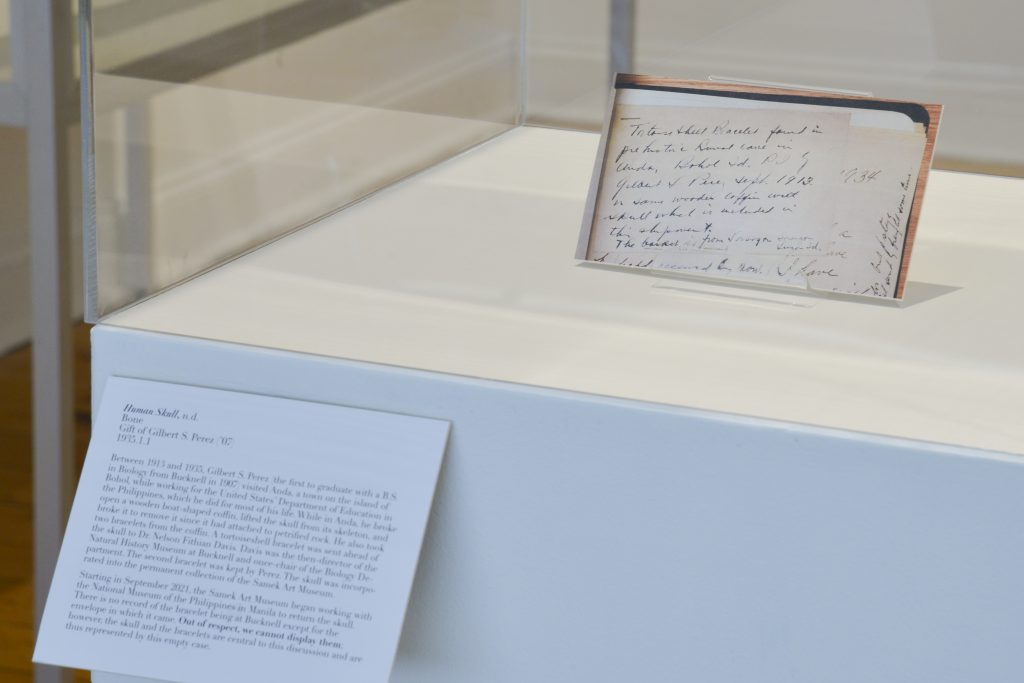 Tortoise Shell Bracelet found in
prehistoric burial cave in
Anda, Bohol Id. P.I. by
Gilbert S Perez, Sept. 1913
in same wooden coffin with
skull which is included in
this shipment.
The basket is from Sorsogon
Luzon Id.
received by now. I have
1934
a
have
Human Skull, n.d.
Bone
Gift of Gilbert S. Perez ('07)
1935.1.1
Between 1913 and 1935, Gilbert S. Perez (the first to graduate with a B.S.
in Biology from Bucknell in 1907) visited Anda, a town on the island of
Bohol, while working for the United States' Department of Education in
the Philippines, which he did for most of his life. While in Anda, he broke
open a wooden boat-shaped coffin, lifted the skull from its skeleton, and
broke it to remove it since it had attached to petrified rock. He also took
two bracelets from the coffin. A tortoiseshell bracelet was sent ahead of
the skull to Dr. Nelson Fithian Davis. Davis was the then-director of the
Natural History Museum at Bucknell and once-chair of the Biology De-
partment. The second bracelet was kept by Perez. The skull was incorpo-
rated into the permanent collection of the Samek Art Museum.
Starting in September 2021, the Samek Art Museum began working with
the National Museum of the Philippines in Manila to return the skull.
There is no record of the bracelet being at Bucknell except for the
envelope in which it came. Out of respect, we cannot display them;
however, the skull and the bracelets are central to this discussion and are
thus represented by this empty case.